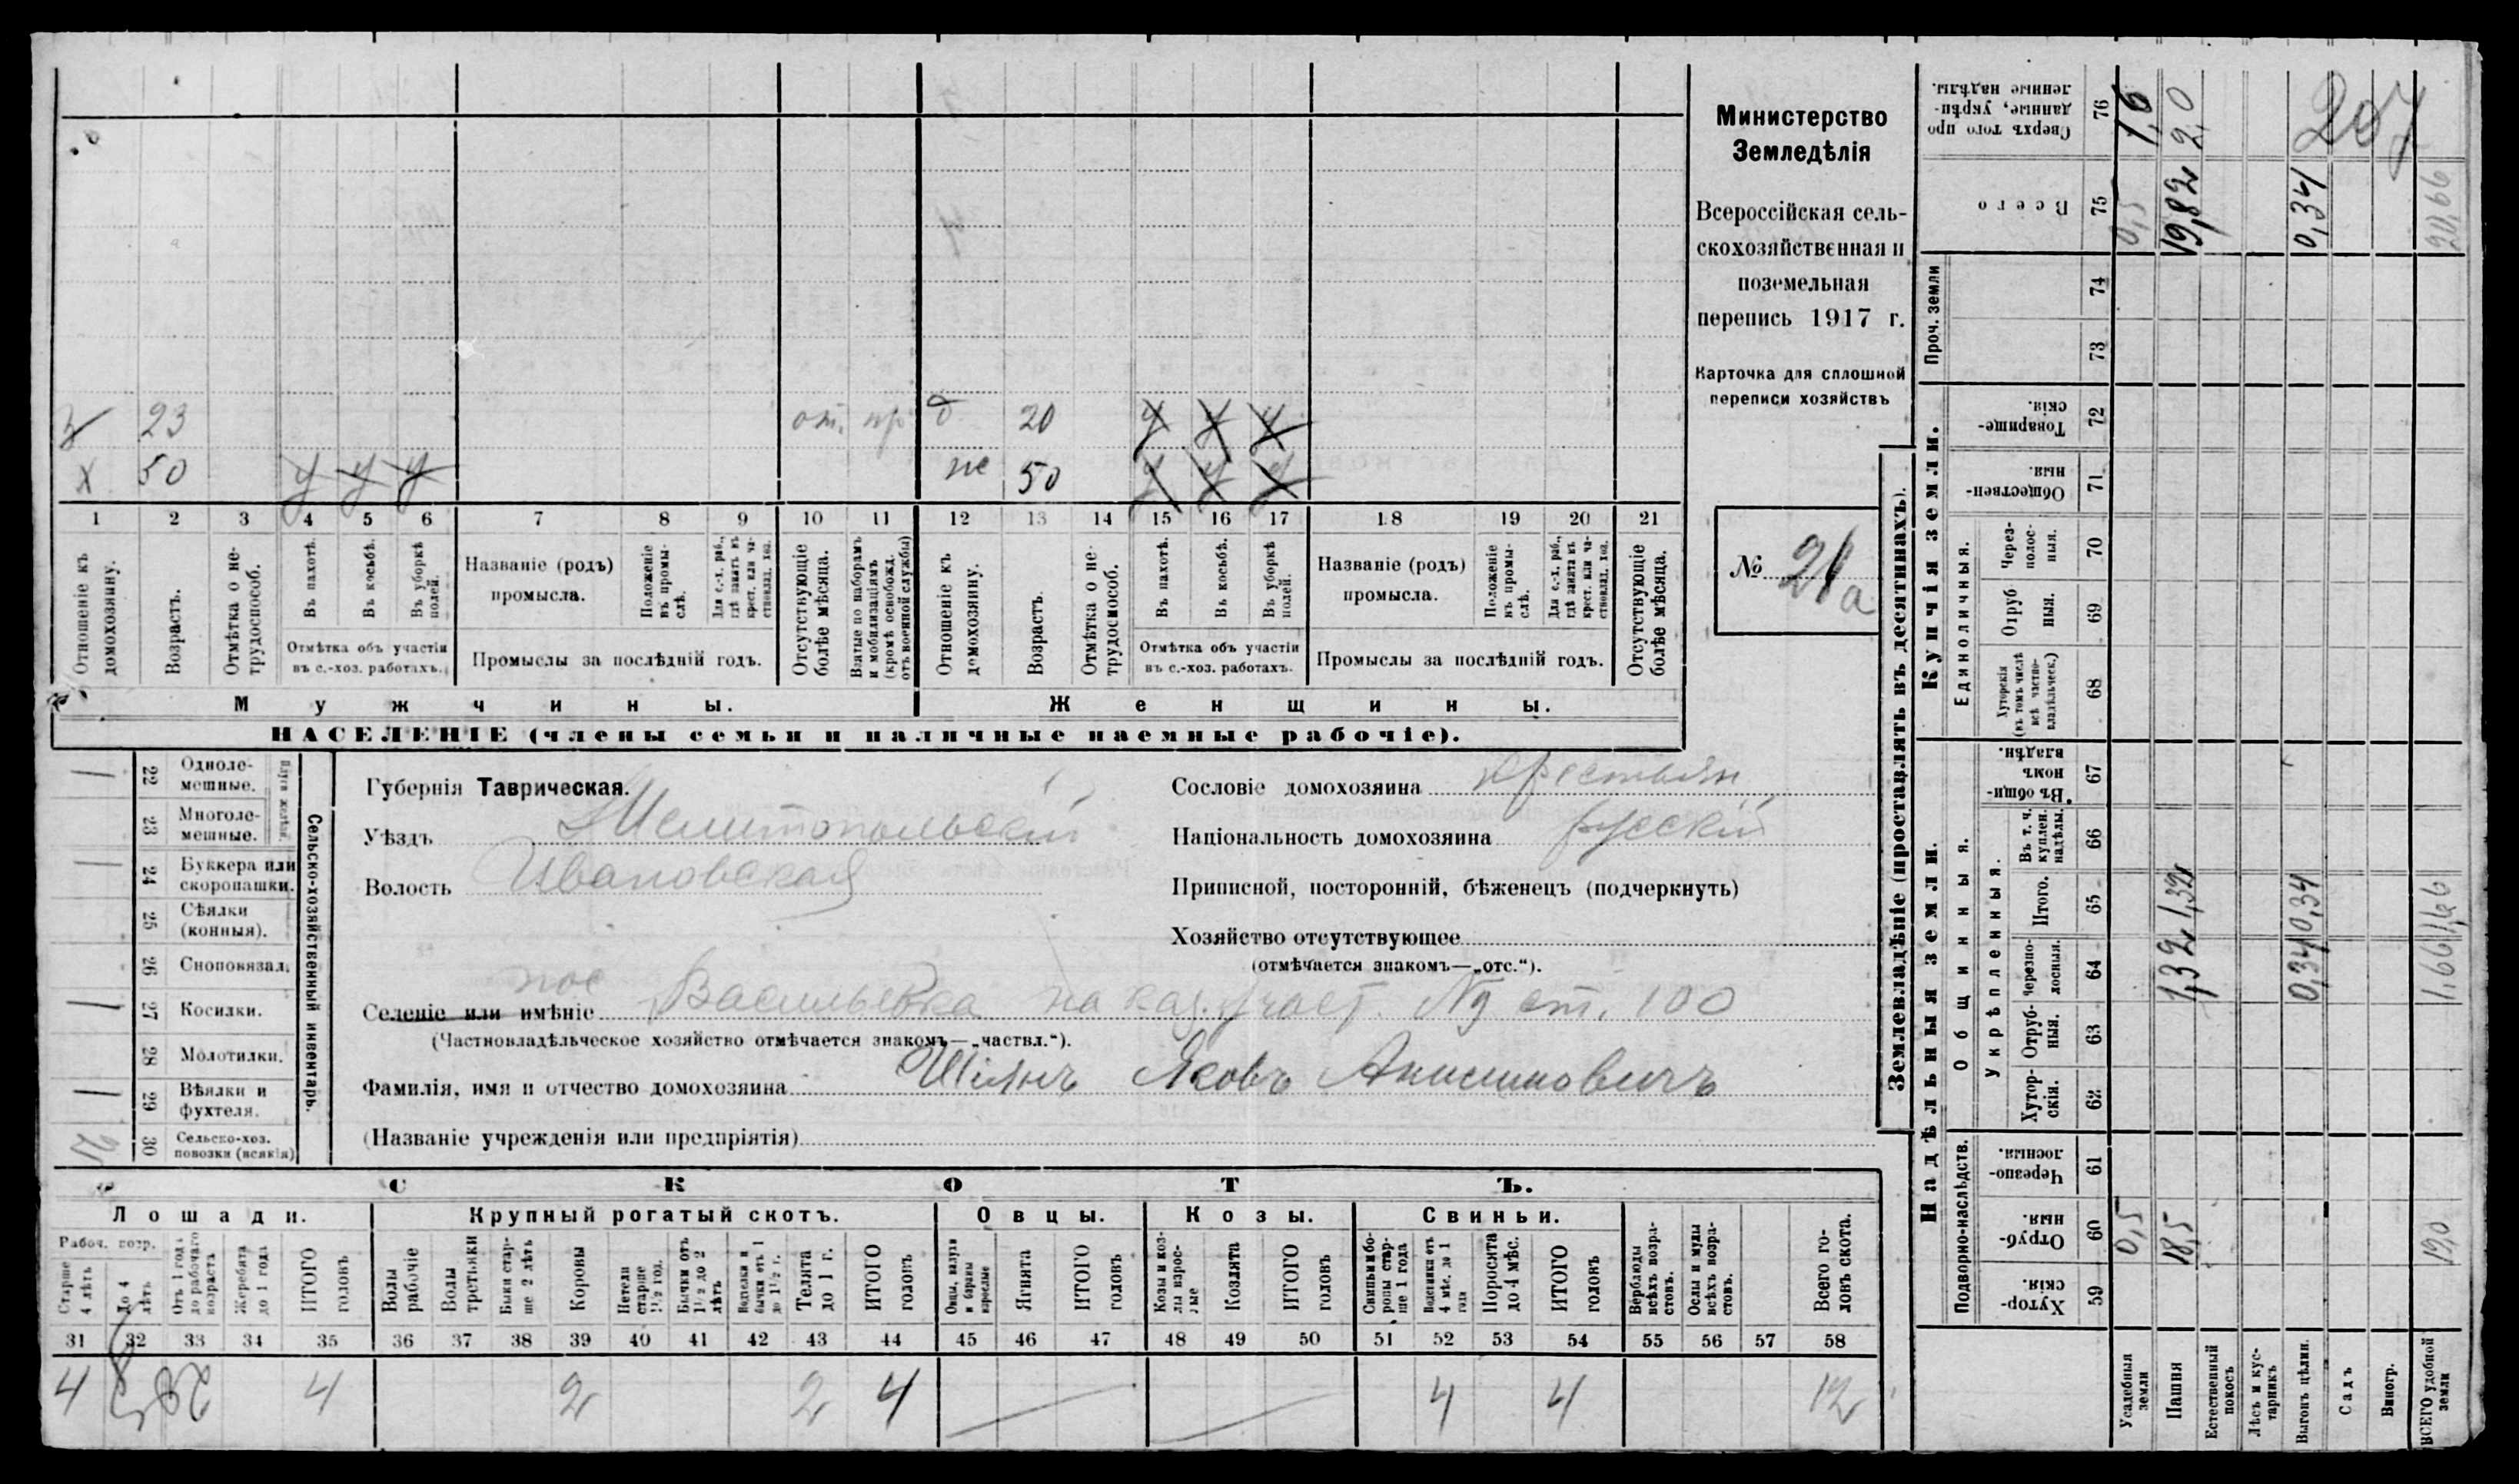 Министерство
Земледѣлія
Всероссійская сель-
скохозяйственная и
поземельная
перепись 1917 г.
Карточка для сплошной
переписи хозяйствъ
№ 21а
23 от. пр. 20 У У У
Х 50 У У У же 50 У У У
1 2 3 4 5 6 7 8 9 10 11 12 13 14 15 16 17 18 19 20 21
Отношеніе къ домохозяину.
Возрастъ.
Отмѣтка о не-трудоспособ.
Въ пахотѣ.
Въ косьбѣ.
Въ уборкѣ полей.
Отмѣтка объ участіи
въ с.-хоз. работахъ.
Названіе (родъ)
промысла.
Положеніе въ промы-слѣ.
Для с.-х. раб., гдѣ занятъ въ крест. или ча-стновлад. хоз.
Промыслы за послѣдній годъ.
Отсутствующіе болѣе мѣсяца.
Взятые по наборамъ и мобилизаціямъ (кромѣ освобожд. отъ военной службы)
Отношеніе къ домохозяину.
Возрастъ.
Отмѣтка о не-трудоспособ.
Въ пахотѣ.
Въ косьбѣ.
Въ уборкѣ полей.
Отмѣтка объ участіи
въ с.-хоз. работахъ.
Названіе (родъ)
промысла.
Положеніе въ промы-слѣ.
Для с.-х. раб., гдѣ занята въ крест. или ча-стновлад. хоз.
Промыслы за послѣдній годъ.
Отсутствующіе болѣе мѣсяца.
Мужчины. Женщины.
НАСЕЛЕНІЕ (члены семьи и наличные наемные рабочіе).
Сельско-хозяйственный инвентарь.
22 Одноле-мешные.
23 Многоле-мешные.
24 Буккера или скоропашки.
25 Сѣялки (конныя).
26 Сноповязал.
27 Косилки.
28 Молотилки.
29 Вѣялки и фухтеля.
30 Сельско-хоз. повозки (всякія)
Губернія Таврическая.
Уѣздъ Мелитопольскій
Волость Ивановская
Сословіе домохозяина крестьян
Національность домохозяина русскій
Приписной, посторонній, бѣженецъ (подчеркнуть)
Хозяйство отсутствующее
(отмѣчается знакомъ—„отс.“).
пос
Селеніе или имѣніе Васильевка на каз. участ. № ст. 100
(Частновладѣльческое хозяйство отмѣчается знакомъ—„частвл.“).
Фамилія, имя и отчество домохозяина Яковъ Анисимовичъ
(Названіе учрежденія или предпріятія)
СКОТЪ.
Лошади. Крупный рогатый скотъ. Овцы. Козы. Свиньи.
Рабоч. возр.
Старше 4 лѣтъ
До 4 лѣтъ
Отъ 1 года до рабочаго возраста
Жеребята до 1 года
ИТОГО головъ
Волы рабочіе
Волы третьяки
Быки стар-ше 2 лѣтъ
Коровы
Нетели старше 1½ год.
Бычки отъ 1½ до 2 лѣтъ
Водтелки и бычки отъ 1 до 1½ г.
Телята до 1 г.
ИТОГО головъ
Овцы, валухи и бараны взрослые
Ягнята
ИТОГО головъ
Козы и коз-лы взрос-лые
Козлята
ИТОГО головъ
Свиньи и бо-ровы стар-ше 1 года
Подсвинки отъ 4 мѣс. до 1 года
Поросята до 4 мѣс.
ИТОГО головъ
Верблюды всѣхъ возра-стовъ.
Ослы и мулы всѣхъ возра-стовъ.
Всего го-ловъ скота.
31 32 33 34 35 36 37 38 39 40 41 42 43 44 45 46 47 48 49 50 51 52 53 54 55 56 57 58
4 4 2 2 4 4 4 12
Землевладѣніе (проставлять въ десятинахъ).
Надѣльныя земли. Купчія земли. Проч. земли
Подворно-наслѣдств. Общинныя. Укрѣпленныя. Единоличныя.
59 Хутор-скія.
60 Отруб-ныя.
61 Черезпо-лосныя.
62 Хутор-скія.
63 Отруб-ныя.
64 Черезпо-лосныя.
65 Итого.
66 Въ т. ч. куплен. надѣлы.
67 Въ общи-номъ владѣн.
68 Хуторскія (въ томъ числѣ всѣ частно-владѣльческ.)
69 Отруб ныя.
70 Через-полос-ныя.
71 Обществен-ныя.
72 Товарище-скія.
73
74
75 Всего
76 Сверхъ того про данные, укрѣп-ленные надѣлы.
Усадебныя земли 0,5 0,5 1,6
Пашня 18,5 1,32 1,32 19,82 2,0
Естественный покосъ
Лѣсъ и кус-тарникъ
Выгонъ цѣлин. 0,34 0,34 0,34
Садъ
Виногр.
ВСЕГО удобной земли 19,0 1,66 1,66 20,66
207